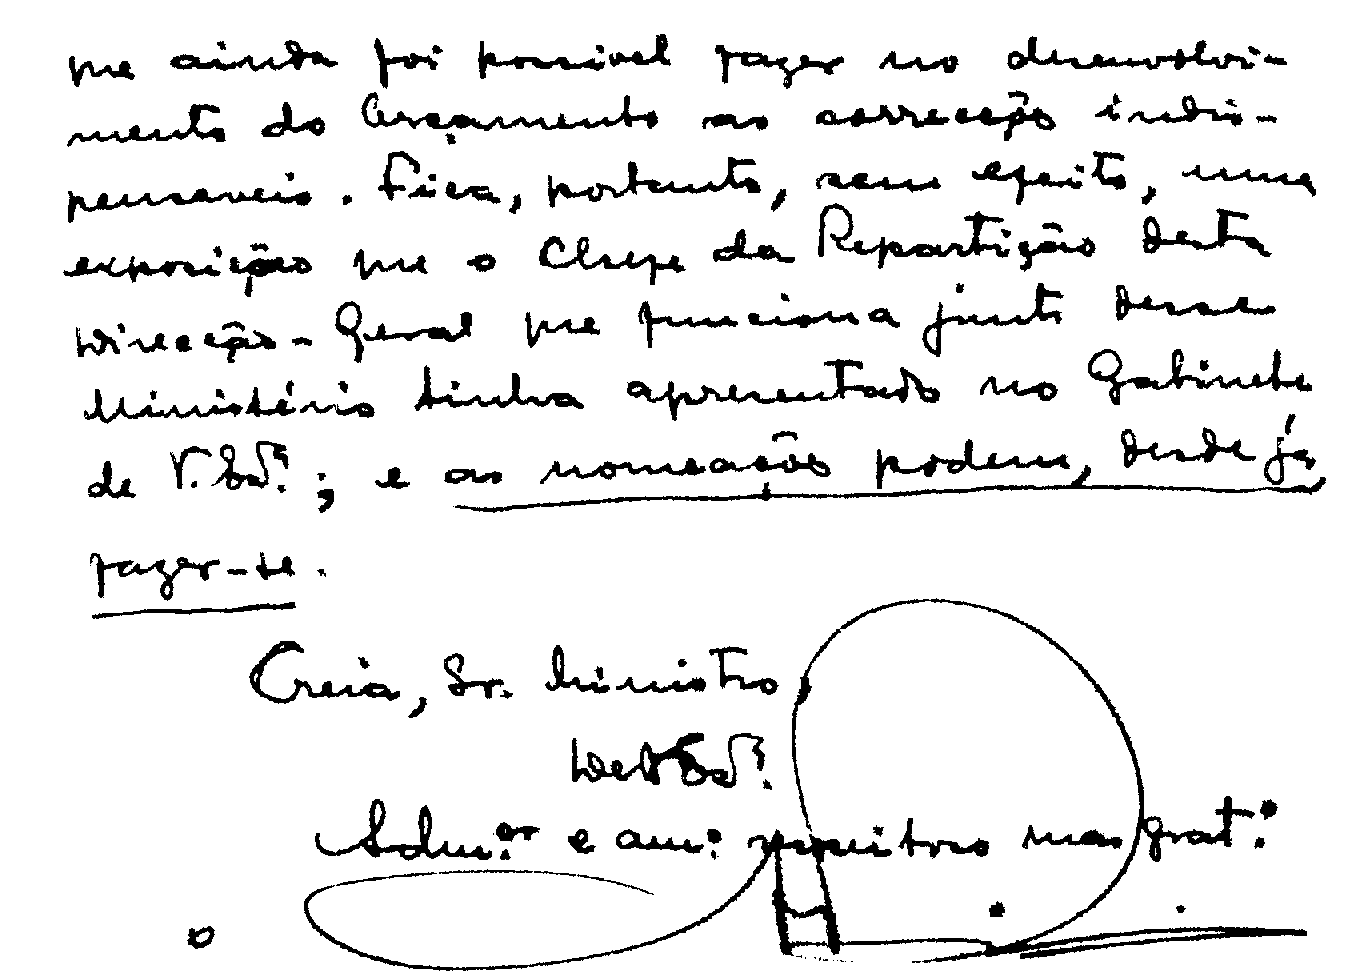 que ainda foi possivel fazer no desenvolvi-
mento do Orçamento as correcções indis-
pensaveis. Fica, portanto, sem efeito, uma
exposição que o Chefe da Repartição desta
Direcção-Geral que funciona junto desse
Ministério tinha apresentado no Gabinete
de V. Exª.; e as nomeações podem, desde já,
fazer-se.
Creia, Sr. Ministro,
De V. Exª.
Adm.ºr e am.º muito mas grat.º